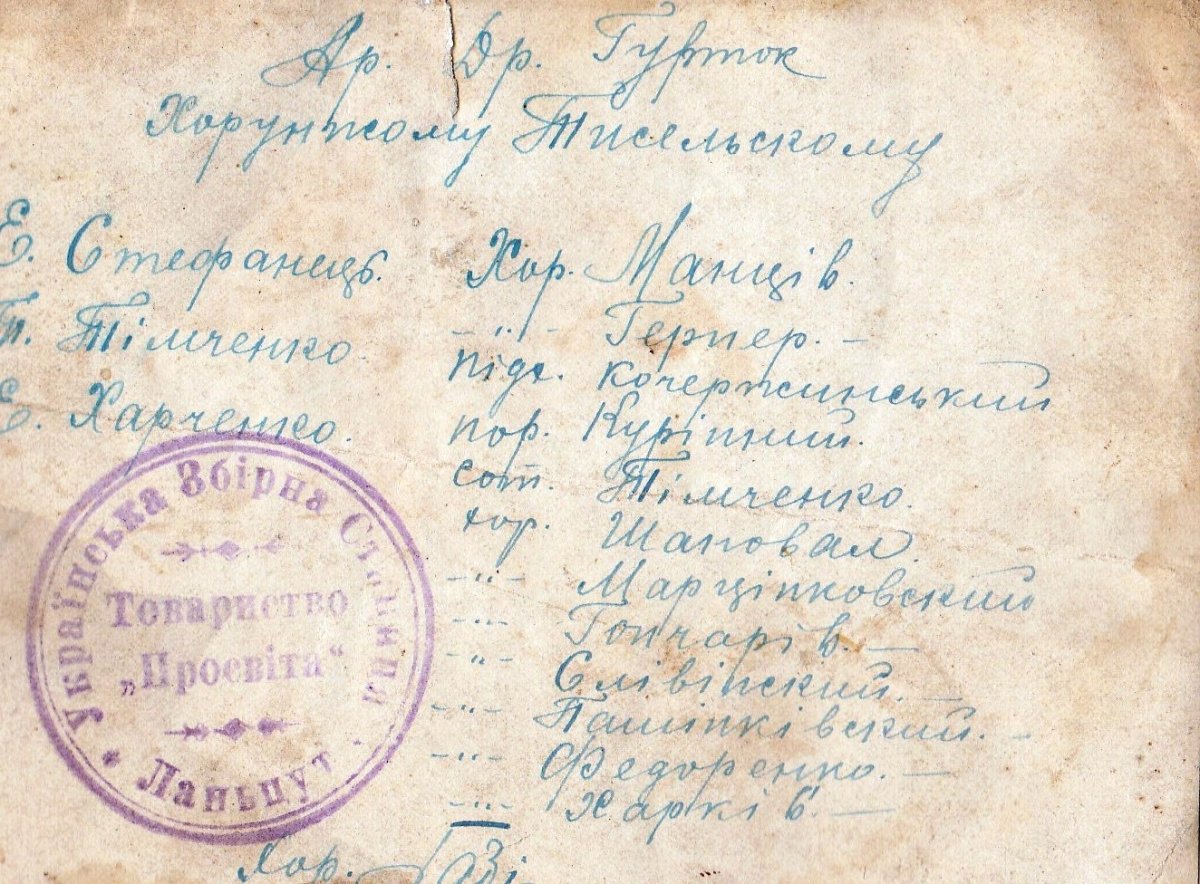 Ар. Др. Гурток
Хорунжому Тисельскому
Е. Стефанець.
Т. Тімченко
Е. Харченко.
Хор. Манців.
-"- Герпер. -
підх. Кочержинський
пор. Куріпний.
сот. Тімченко.
хор. Шаповал.
-"- Марціпковский
-"- Гончарів. -
-"- Слівінский. -
-"- Пашінківский. -
-"- Федоренко. -
-"- Харків. -
Хор.
Українська Збірна Станиця
Товариство
„Просвіта“
Ланьцут